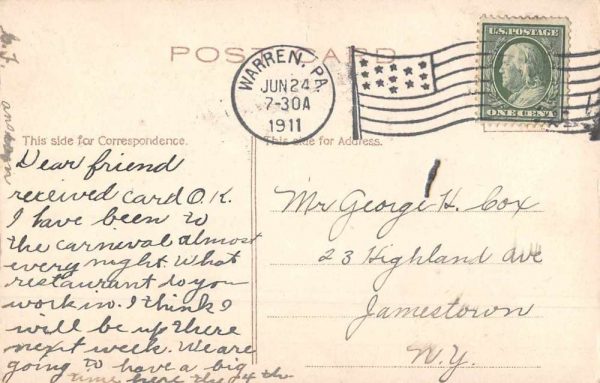 POST CARD
WARREN, PA.
JUN 24
7-30A
1911
U.S. POSTAGE
ONE CENT
This side for Correspondence.
This side for Address.
Dear friend
received card O.K.
I have been to
the carneval almost
every night. What
restaurant do you
work in. I think I
will be up there
next week. We are
going to have a big
time here the 4 th
Mr George H. Cox
23 Highland Ave
Jamestown
N.Y.